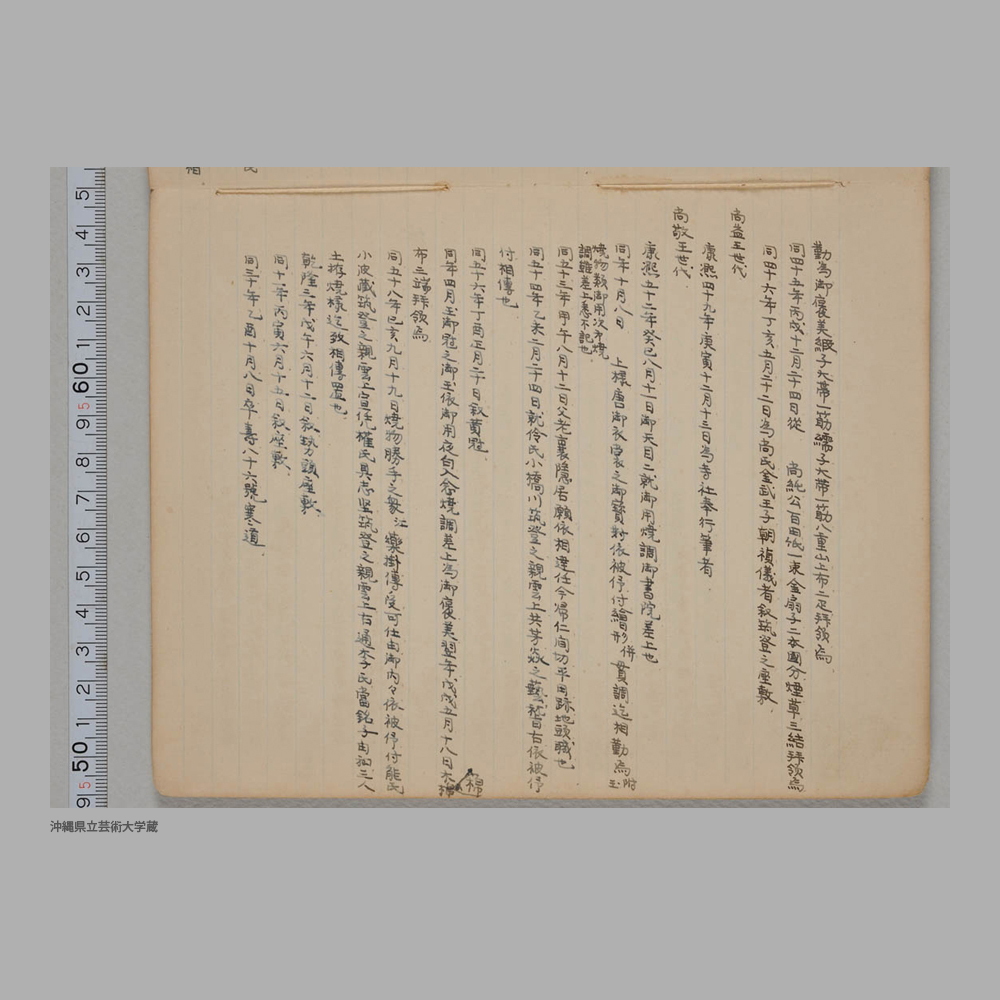 勤為御褒美緞子大帯一筋繻子大帯一筋八重山上布二疋拝領為
同四十五年丙戌十二月二十四日從 尚純公百田紙一束金扇子二本國分煙草三結拝領為
同四十六年丁亥五月二十二日為尚氏金武王子朝禎儀者叙筑登之座敷
尚益王世代
康熙四十九年庚寅十二月十三日為寺社奉行筆者
尚敬王世代
康熙五十二年癸巳八月十一日御天目二就御用焼調御書院差上也
同年十月八日 上様唐御衣裳之御寶粉依被仰付繪形併貫調迄相勤為
焼物類御用次第焼
調雖差上悉不記也
同五十三年甲午八月十二日父老衰隠居願依相達任今帰仁間切平田跡地頭職也
同五十四年乙未二月二十四日就伶氏小橋川筑登之親雲上共芽焱之藝旨右依被仰
付相傳也
同五十六年丁酉正月二十日叙黄冠
同年四月玉御冠之御玉依御用夜白入念焼調差上為御褒美翌年戊戌五月十八日木綿
布三端拝領為
同五十八年己亥九月十九日焼物勝手之衆江藥掛傳受可仕由御内々依被仰付能氏
小波蔵筑登之親雲上宣任權氏真志堅筑登之親雲上右通李氏當銘子由
土持焼様迄致相傳置也
乾隆三年戊午六月十二日叙勢頭座敷
同十一年丙寅六月十五日叙座敷
同三十年乙酉十月八日卒壽八十六號寒道
綿
沖縄県立芸術大学蔵